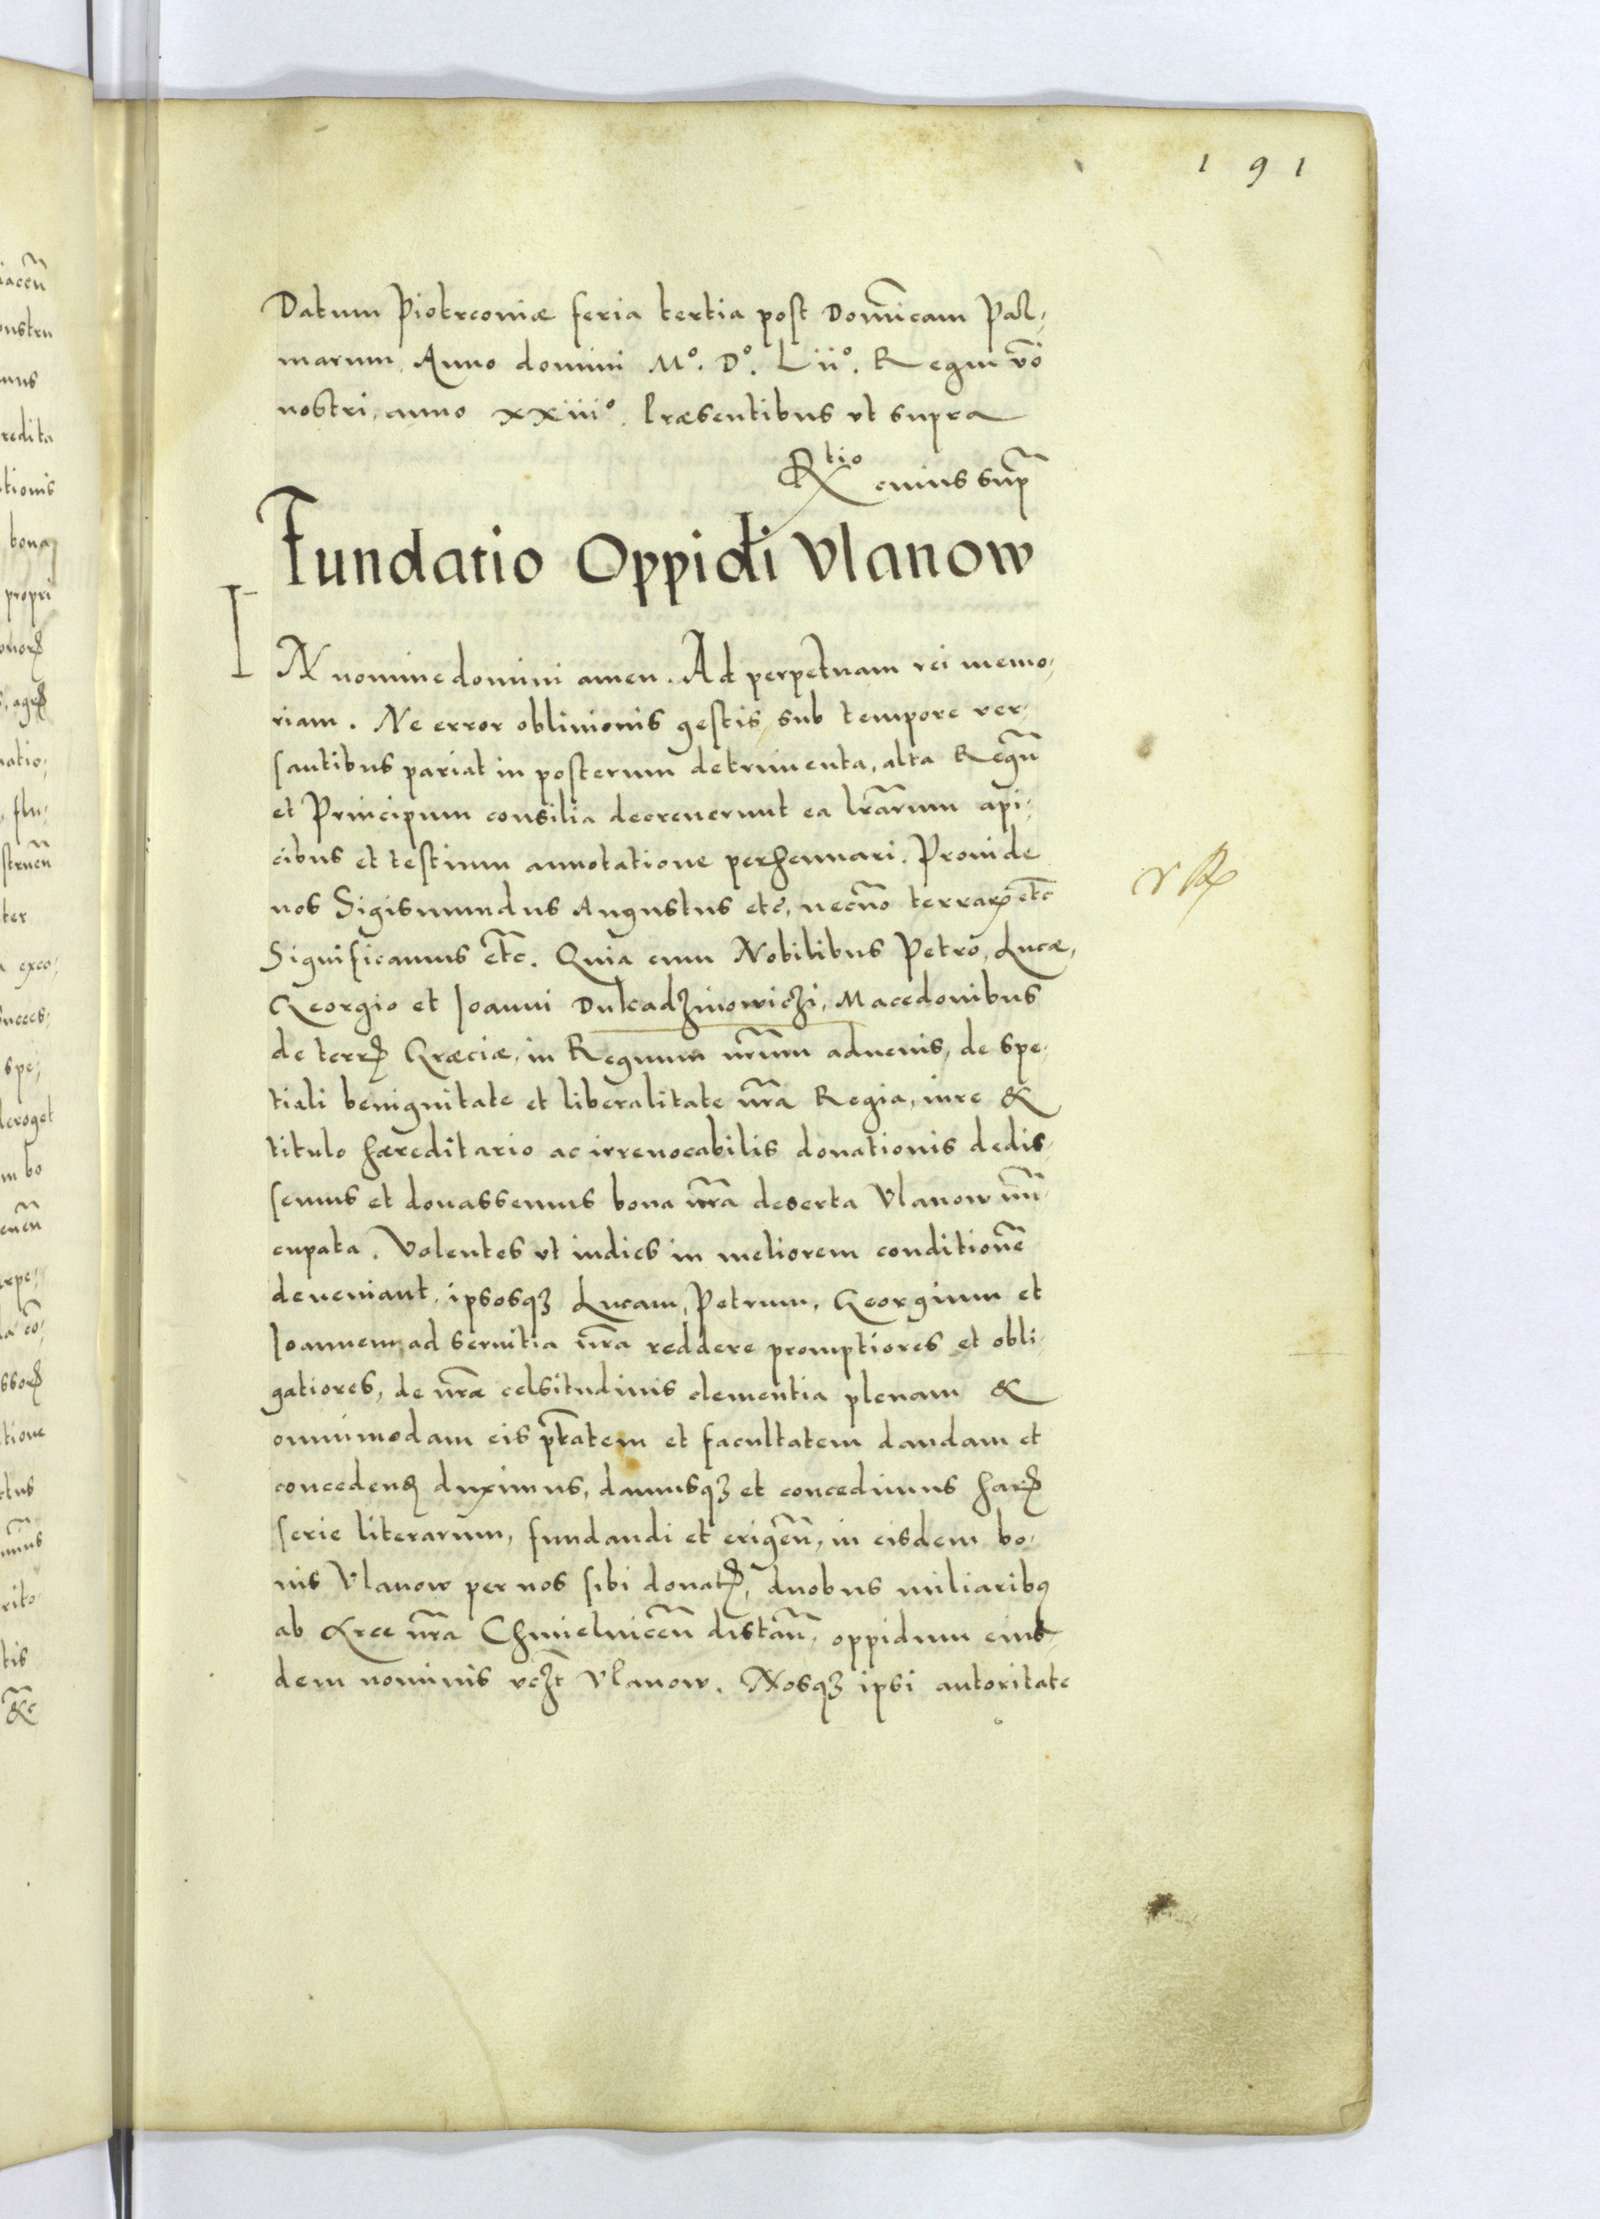 191
Datum Piotrconiæ feria tertia post Domĩcam Pal,
marum, Anno domini M°. D°. Lii°. Regni vo͂
nostri, anno xxiii°. Præsentibus vt supra
R͞tio cuius sup͂
Fundatio Oppidi Vlanow
IN nomine domini amen. Ad perpetuam rei memo,
riam. Ne error obliuionis gestis, sub tempore ver,
santibus pariat in posterum detrimenta, alta Regũ
et Principum consilia decreuerunt ea lr̃arum api,
cibus et testium annotatione perhennari. Proinde
nos Sigismundus Augustus etc̃, necño terraꝝ etc̃
Significamus etc̃. Quia cum Nobilibus Petro, Lucæ,
Georgio et Joanni Dukadzinowiczi, Macedonibus
de terrꝭ Græciæ, in Regnum nr̃um aduenis, de spe,
tiali benignitate et liberalitate nr̃a Regia, iure &
titulo hæreditario ac irreuocabilis donationis dedis,
semus et donassemus bona nr̃a deserta Vlanow nũ,
cupata. Volentes vt indies in meliorem conditionẽ
deueniant, ipsosqꝫ Lucam, Petrum, Georgium et
Joannem, ad seruitia nr̃a reddere promptiores et obli,
gatiores, de nr̃æ celsitudinis clementia plenam &
omnimodam eis ptãtem et facultatem dandam et
concedenꝭ duximus, damusqꝫ et concedimus harꝭ
serie literarum, fundandi et erigeñ, in eisdem bo,
nis Vlanow per nos sibi donatꝭ, duobus miliaribꝰ
ab Arce nr̃a Chmielniceñ distañ, oppidum eius,
dem nominis vcꝫt Vlanow. Nosqꝫ ipsi autoritate